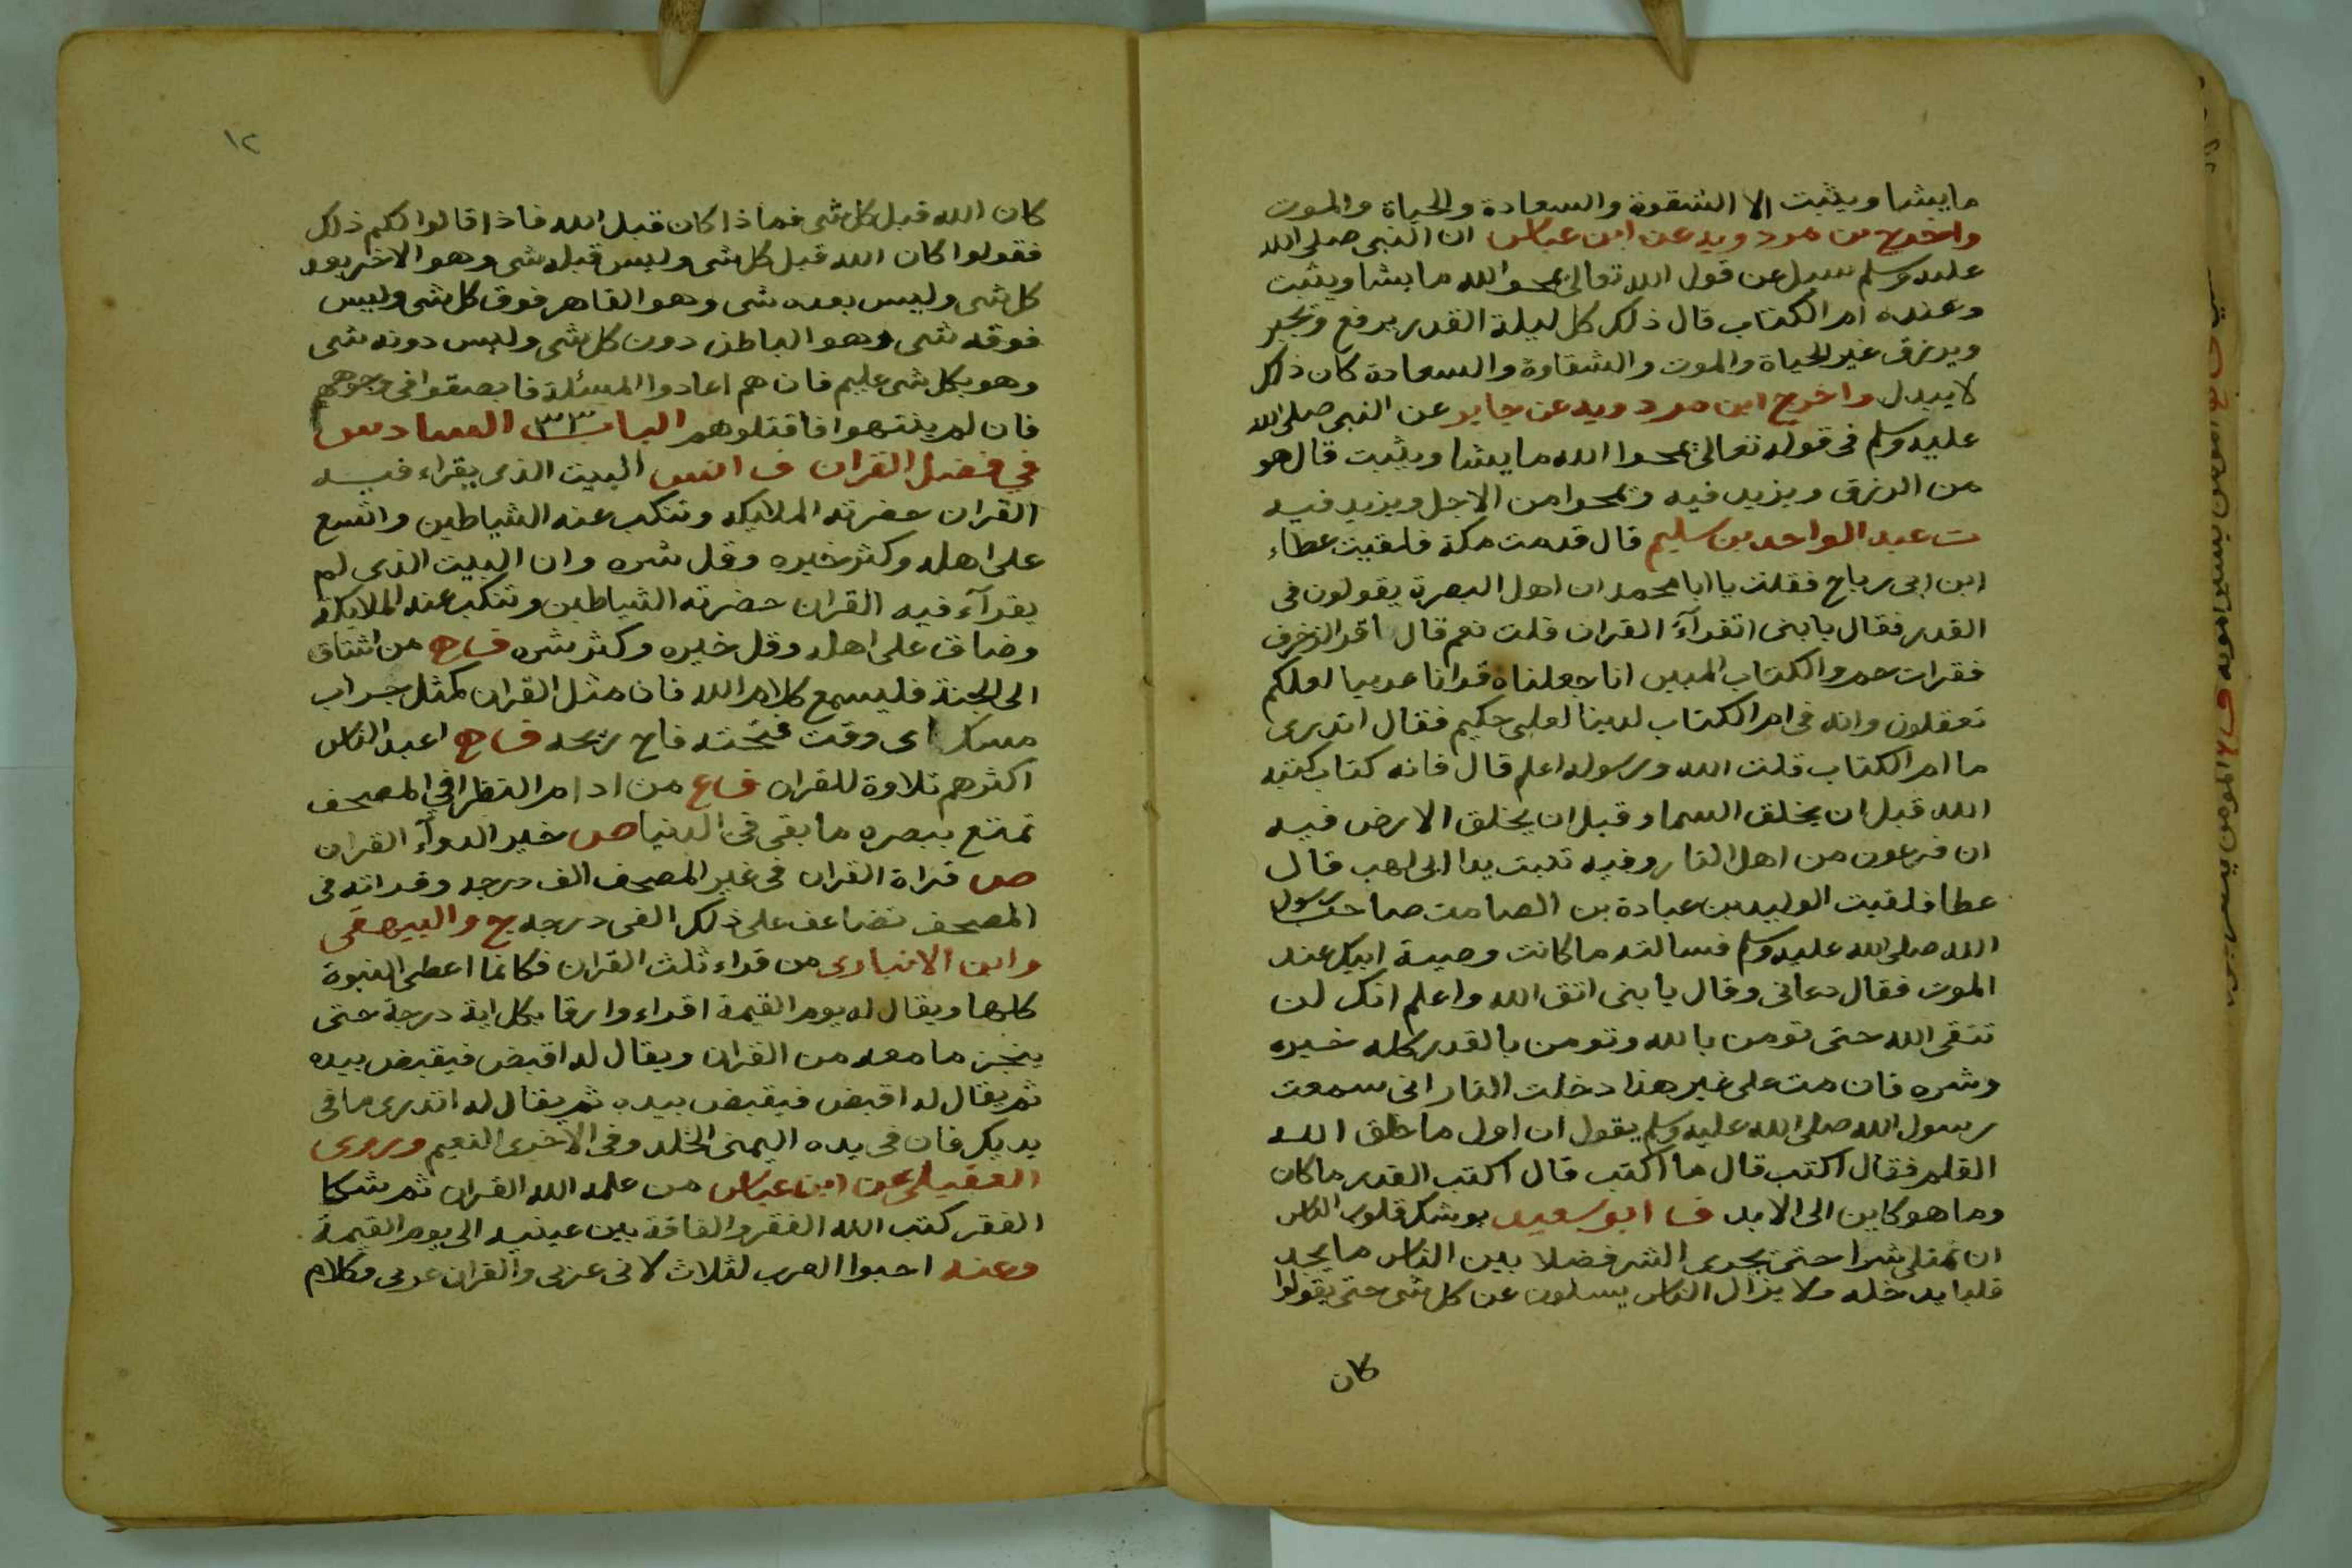 مايشا ويثبت الا الشقوة والسعادة والحياة والموت
واخرج بن مردويه عن ابن عباس ان النبى صلى الله
عليه وسلم سيل عن قول الله تعالى يمحوا الله ما يشا ويثبت
وعنده ام الكتاب قال ذلك كل ليلة القدر يرفع ويجبر
ويرزق غير الحياة والموت والشقاوة والسعادة كان ذلك
لا يبدل واخرج ابن مردويه عن جابر عن النبى صلى الله
عليه وسلم فى قوله تعالى يمحوا الله ما يشا ويثبت قال هو
من الرزق ويزيد فيه ويمحوا من الاجل ويزيد فيه
ت عبد الواحد بن سليم قال قدمت مكة فلقيت عطاء
ابن ابى رباح فقلت يا ابا محمد ان اهل البصرة يقولون فى
القدر فقال يا بنى اتقرآء القران قلت نعم قال اقر الزخرف
فقرات حم والكتاب المبين انا جعلناه قرانا عربيا لعلكم
تعقلون وانه فى ام الكتاب لدينا لعلى حكيم فقال اتدرى
ما ام الكتاب قلت الله ورسوله اعلم قال فانه كتاب كتبه
الله قبل ان يخلق السما وقبل ان يخلق الارض فيه
ان فرعون من اهل النار وفيه تبت يدا ابى لهب قال
عطا فلقيت الوليد بن عبادة بن الصامت صاحب رسول
الله صلى الله عليه وسلم فسالته ما كانت وصية ابيك عند
الموت فقال دعانى وقال يا بنى اتق الله واعلم انك لن
تتقى الله حتى تومن بالله وتومن بالقدر كله خيره
وشره فان مت على غير هذا دخلت النار انى سمعت
رسول الله صلى الله عليه وسلم يقول ان اول ما خلق الله
القلم فقال اكتب قال ما اكتب قال اكتب القدر ما كان
وما هو كاين الى الابد ف ابو سعيد يوشك قلوب الناس
ان تمتلى شرا حتى يجرى الشر فضلا بين الناس ما يجد
قلبا يدخله ولا يزال الناس يسلون عن كل شى حتى يقولوا
كان
١٢
كان الله قبل كل شى فماذا كان قبل الله فاذا قالوا لكم ذلك
فقولوا كان الله قبل كل شى وليس قبله شى وهو الاخر بعد
كل شى وليس بعده شى وهو القاهر فوق كل شى وليس
فوقه شى وهو الباطن دون كل شى وليس دونه شى
وهو بكل شى عليم فان هم اعادوا المسئلة فابصقوا فى وجوههم
فان لم ينتهوا فاقتلوهم الباب السادس
في فضل القران ف انس البيت الذى يقراء فيه
القران حضرته الملايكه وتنكب عنه الشياطين واتسع
على اهله وكثر خيره وقل شره وان البيت الذى لم
يقرآء فيه القران حضرته الشياطين وتنكب عنه الملايكة
وضاق على اهله وقل خيره وكثر شره من اشتاق
الى الجنة فليسمع كلام الله فان مثل القران كمثل جراب
مسك اى وقت فتحته فاح ريحه اعبد الناس
اكثرهم تلاوة للقران من ادام النظرا في المصحف
تمتع ببصره ما بقى فى الدنيا ص خير الدوآء القران
ص قراة القران فى غير المصحف الف درجه وقراته فى
المصحف تضاعف على ذلك الفى درجه ج والبيهقى
وابن الانبارى من قراء ثلث القران فكانما اعطى النبوة
كلها ويقال له يوم القيمة اقراء وارقا بكل اية درجة حتى
ينجز ما معه من القران ويقال له اقبض فيقبض بيده
ثم يقال له اقبض فيقبض بيده ثم يقال له اتدرى ما فى
يديك فان فى يده اليمنى الخلد وفى الاخرى النعيم وروى
العقيلى عن ابن عباس من علمه الله القران ثم شكا
الفقر كتب الله الفقر والفاقة بين عينيه الى يوم القيمة
وعنه احبوا العرب لثلاث لانى عربى والقران عربى وكلام